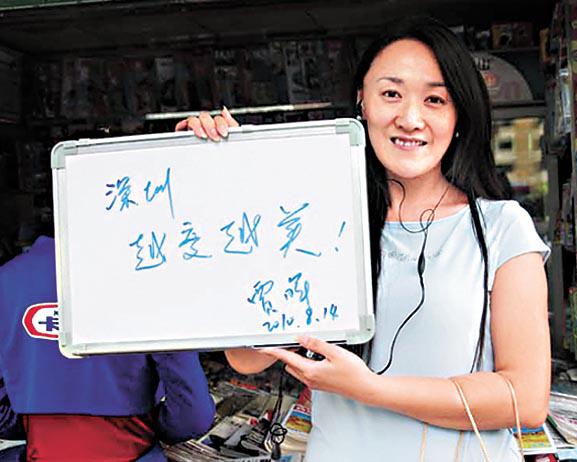 深圳
越变越美!
2010.8.14
卡